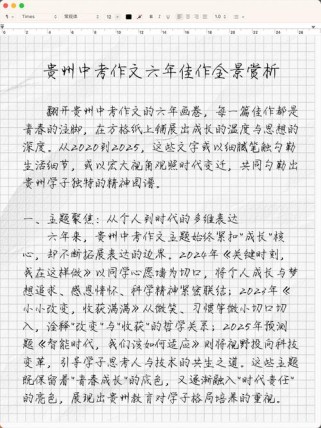 Times
常规体
12
B
I
U
1.0
0 2 4 6 8 10 12 14 16 18 20 22 24 26
贵州中考作文六年佳作全景赏析
翻开贵州中考作文的六年画卷，每一篇佳作都是
青春的注脚，在方格纸上铺展出成长的温度与思想的
深度。从2020到2025，这些文字或以细腻笔触勾勒
生活细节，或以宏大视角观照时代变迁，共同勾勒出
贵州学子独特的精神图谱。
一、主题聚焦：从个人到时代的多维表达
六年来，贵州中考作文主题始终紧扣"成长"核
心，却不断拓展表达的边界。2024年《关键时刻，
我在这样做》以同学心愿墙为切口，将个人成长与梦
想追求、感恩情怀、科学精神紧密联结；2023年《
小小改变，收获满满》从微笑、习惯等微小切口切
入，诠释"改变"与"收获"的哲学关系；2025年预测
题《智能时代，我们该如何适应》则将视野投向科技
变革，引导学子思考人与技术的共生之道。这些主题
既保留着"青春成长"的底色，又逐渐融入"时代责任"
的亮色，展现出贵州教育对学子格局培养的重视。